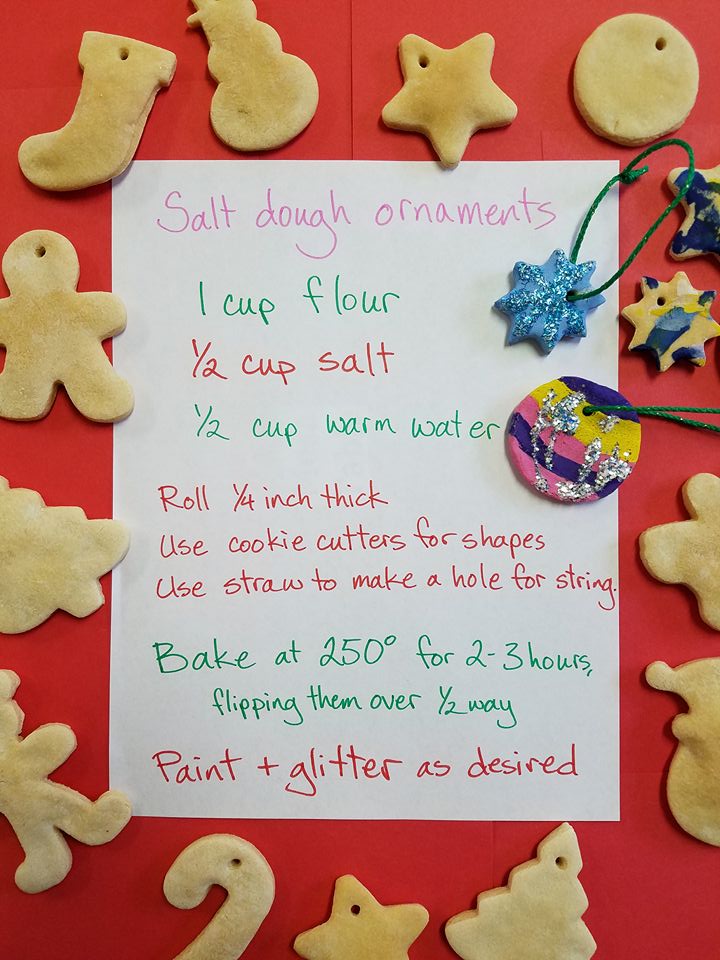 Salt dough ornaments
1 cup flour
½ cup salt
½ cup warm water
Roll ¼ inch thick
Use cookie cutters for shapes
Use straw to make a hole for string.
Bake at 250° for 2-3 hours,
flipping them over ½ way
Paint + glitter as desired